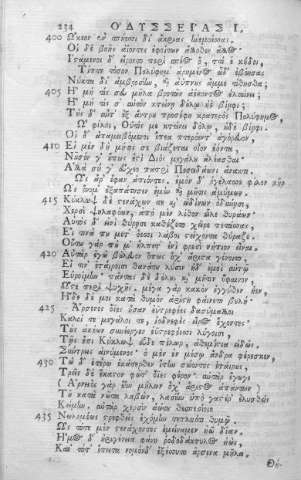 234 ΟΔΥΣΣΕΙΑΣ Ι.
400 Ὤικεον ἐν σπήεσσι δι' ἄκριας ἠνεμοέσσας.
Οἱ δὲ βοῆς ἀίοντες ἐφοίτων ἄλλοθεν ἄλλος.
Ἱστάμενοι δ' εἴροντο περὶ σπέος ὅ, ττι ἑ κήδοι.
Τίπτε τόσον Πολύφημ' ἀρημένος ὧδ' ἐβόησας
Νύκτα δι' ἀμβροσίην, καὶ ἀύπνους ἄμμε τίθησθα;
405 Ἦ μή τίς σευ μῆλα βροτῶν ἀέκοντος ἐλαύνει;
Ἦ μή τίς σ' αὐτὸν κτείνῃ δόλῳ ἠὲ βίηφι;
Τοὺς δ' αὖτ' ἐξ ἄντρου προσέφη κρατερὸς Πολύφημος,
Ὦ φίλοι, Οὖτίς με κτείνει δόλῳ, οὐδὲ βίηφι.
Οἱ δ' ἀπαμειβόμενοι ἔπεα πτερόεντ' ἀγόρευον
410 Εἰ μὲν δὴ μήτις σε βιάζεται οἶον ἐόντα,
Νοῦσόν γ' οὔπως ἔστι Διὸς μεγάλου ἀλέασθαι·
Ἀλλὰ σύ γ' εὔχεο πατρὶ Ποσειδάωνι ἄνακτι.
Ὣς ἄρ' ἔφαν ἀπιόντες. ἐμὸν δ' ἐγέλασσε φίλον κῆρ
Ὡς ὄνομ' ἐξαπάτησεν ἐμὸν καὶ μῆτις ἀμύμων.
415 Κύκλωψ δὲ στενάχων τε καὶ ὠδίνων ὀδύνῃσι,
Χερσὶ ψηλαφόων, ἀπὸ μὲν λίθον εἷλε θυράων·
Αὐτὸς δ' εἰνὶ θύρῃσι καθέζετο χεῖρε πετάσσας,
Εἴ τινά που μετ' ὄεσσι λάβοι στείχοντα θύραζε.
Οὕτω γάρ πού μ' ἤλπετ' ἐνὶ φρεσὶ νήπιον εἶναι.
420 Αὐτὰρ ἐγὼ βούλευον ὅπως ὄχ' ἄριστα γένοιτο,
Εἴ τιν' ἑταίροισιν θανάτου λύσιν ἠδ' ἐμοὶ αὐτῷ
Εὑροίμην· πάντας δὲ δόλους καὶ μῆτιν ὕφαινον,
Ὥστε περὶ ψυχῆς. μέγα γὰρ κακὸν ἐγγύθεν ἦεν.
Ἥδε δέ μοι κατὰ θυμὸν ἀρίστη φαίνετο βουλή·
425 Ἄρσενες ὄιες ἦσαν ἐυτρεφέες δασύμαλλοι
Καλοί τε μεγάλοι τε, ἰοδνεφὲς εἶρος ἔχοντες·
Τοὺς ἀκέων συνέεργον ἐυστρεφέεσσι λύγοισι,
Τῇς ἔπι Κύκλωψ εὗδε πέλωρ, ἀθεμίστια εἰδώς,
Σύντρεις αἰνύμενος· ὁ μὲν ἐν μέσῳ ἄνδρα φέρεσκεν,
430 Τὼ δ' ἑτέρω ἑκάτερθεν ἴτην σώοντες ἑταίρους.
Τρεῖς δὲ ἕκαστον φῶτ' ὄιες φέρον· αὐτὰρ ἔγωγε
(Ἀρνειὸς γὰρ ἔην μήλων ὄχ' ἄριστος ἁπάντων)
Τοῦ κατὰ νῶτα λαβών, λασίην ὑπὸ γαστέρ' ἐλυσθεὶς
Κείμην, αὐτὰρ χερσὶν ἀώτου θεσπεσίοιο
435 Νωλεμέως στρεφθεὶς ἐχόμην τετληότι θυμῷ.
Ὣς τότε μὲν στενάχοντες ἐμείναμεν ἠῶ δῖαν.
Ἦμος δ' ἠριγένεια φάνη ῥοδοδάκτυλος ἠώς,
Καὶ τότ' ἔπειτα νομόνδ' ἐξέσσυτο ἄρσενα μῆλα.